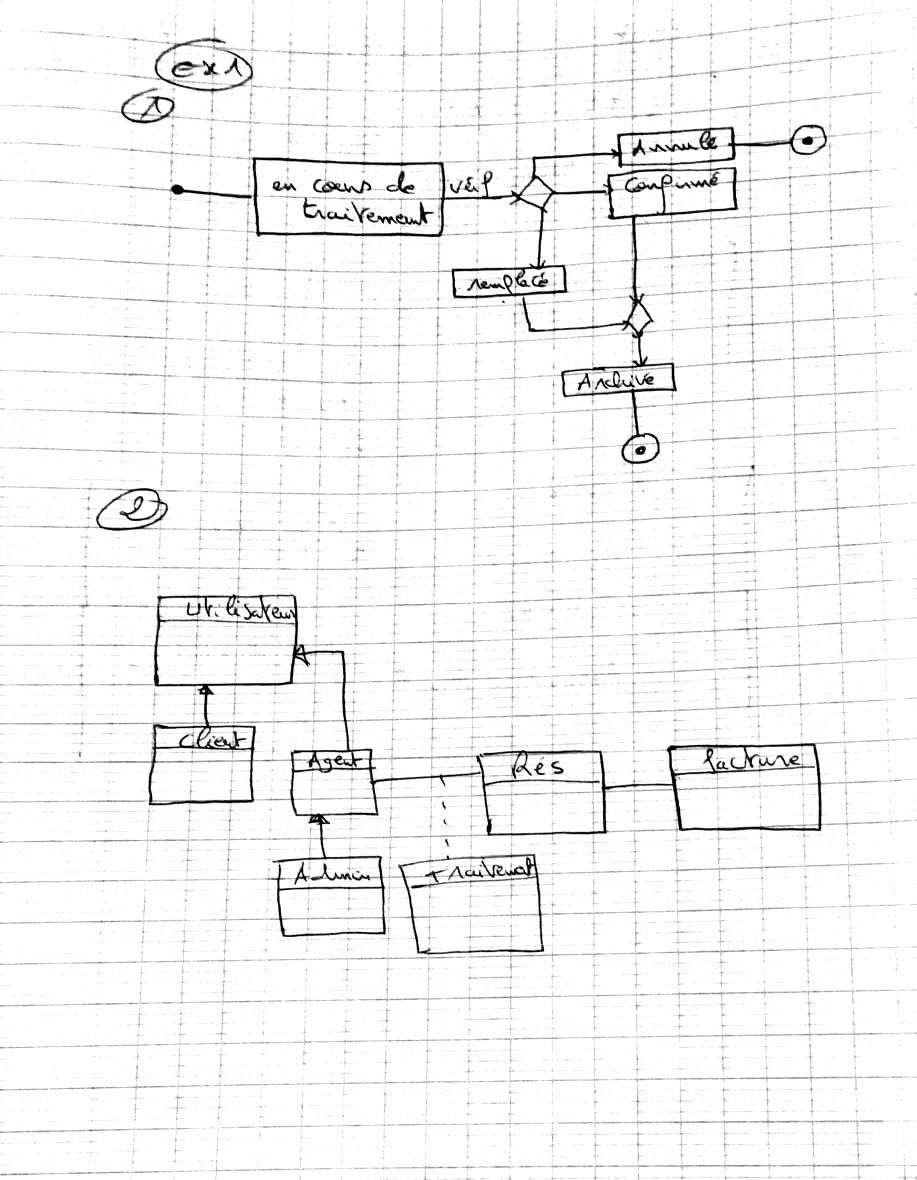 ex1
1
en cours de
traitement
vérif
Annulé
Confirmé
remplacé
Archive
2
Utilisateur
Client
Agent
Rés
facture
Admin
traitement